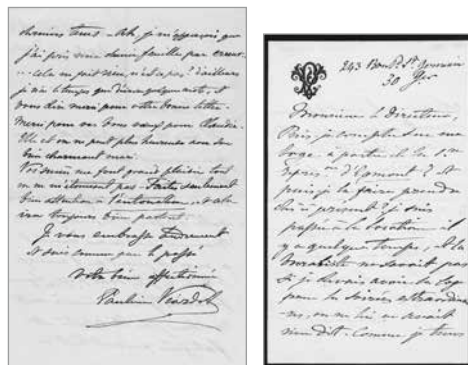 derniers temps - Ah, je m'aperçois que
j'ai pris une demie feuille par erreur
... cela ne fait rien, n'est-ce pas? d'ailleurs
je n'ai le temps que d'écrire quelques mots, et
vous dire merci pour votre bonne lettre.
Merci pour vos bons vœux pour Claudie.
Elle est on ne peut plus heureuse avec son
bien charmant mari.
me font grand plaisir tout
en ne m'étonnant pas. Faites seulement
bien attention à l'intonation, et cela
ira toujours bien partout.
Je vous embrasse tendrement
et suis comme par le passé
votre bien affectionnée
Pauline Viardot
243 Boul.d St. Germain
30
Monsieur le Directeur,
Puis je compter sur ma
loge à partir de la 1re
d'Egmont? et
puis je la faire prendre
dès à présent? je suis
passée à la location il
y a quelque temps, et la
ne savait pas
si je devais avoir la loge
pour les soirées
on ne lui en avait
rien dit. Comme je tiens